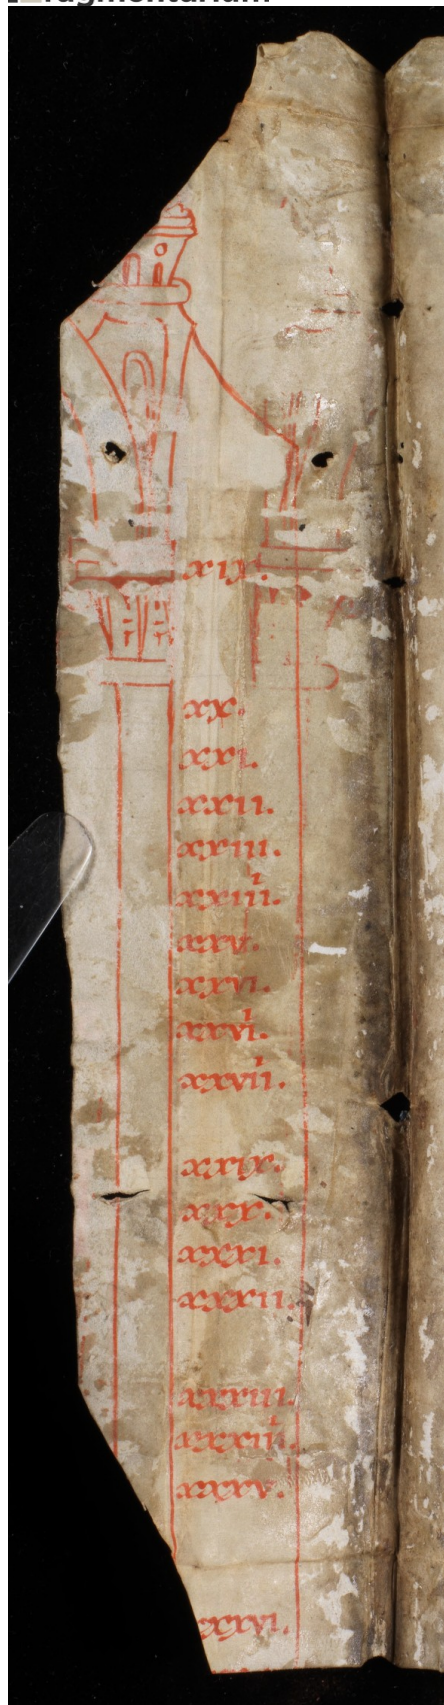 Fragmentarium
xix.
xx.
xxi.
xxii.
xxiii.
xxiiii.
xxv.
xxvi.
xxvii.
xxviii.
xxix.
xxx.
xxxi.
xxxii.
xxxiii.
xxxiiii.
xxxv.
xxxvi.